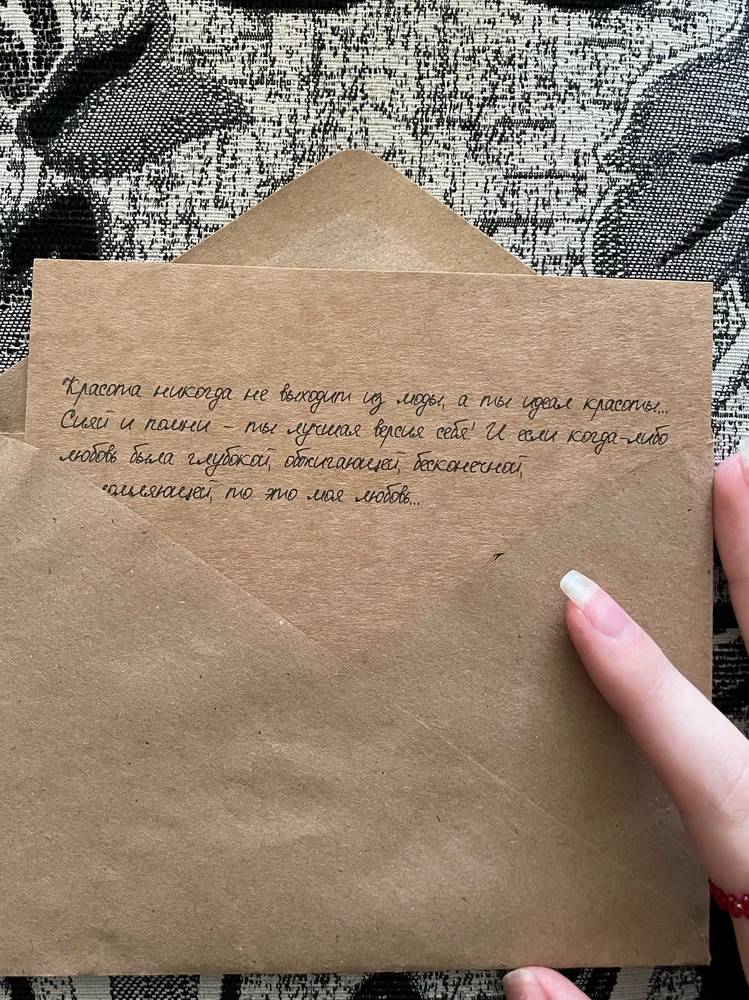 Красота никогда не выходит из моды, а ты идеал красоты...
Сияй и помни - ты лучшая версия себя! И если когда-либо
любовь была глубокой, обжигающей, бесконечной,
то это моя любовь...